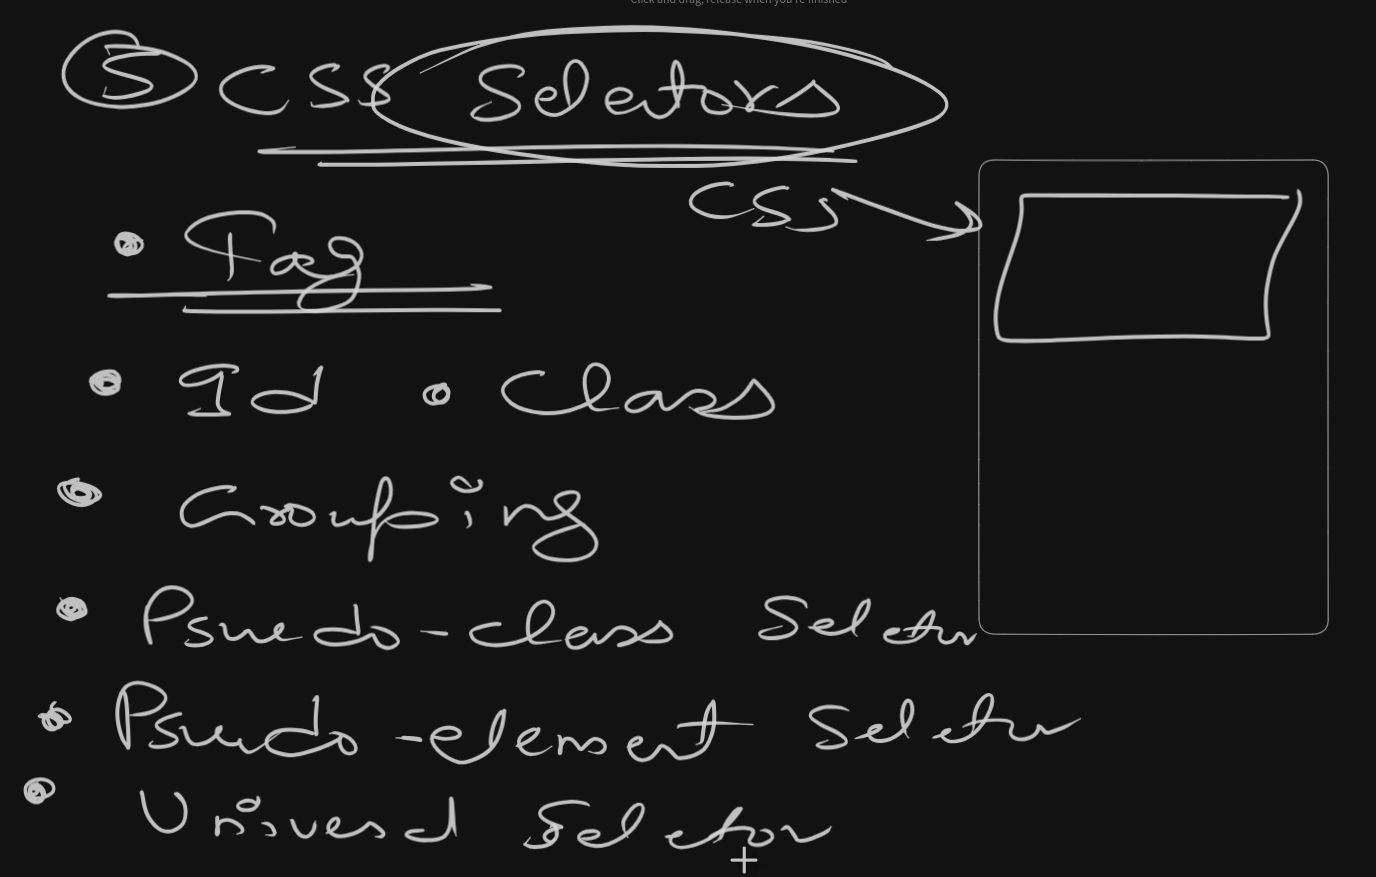 Click and drag, release when you're finished
⑤ CSS Seletors
CSS
• Tag
• Id • Class
• Grouping
• Psuedo-class Seletor
• Psuedo-element Seletor
• Universal Seletor